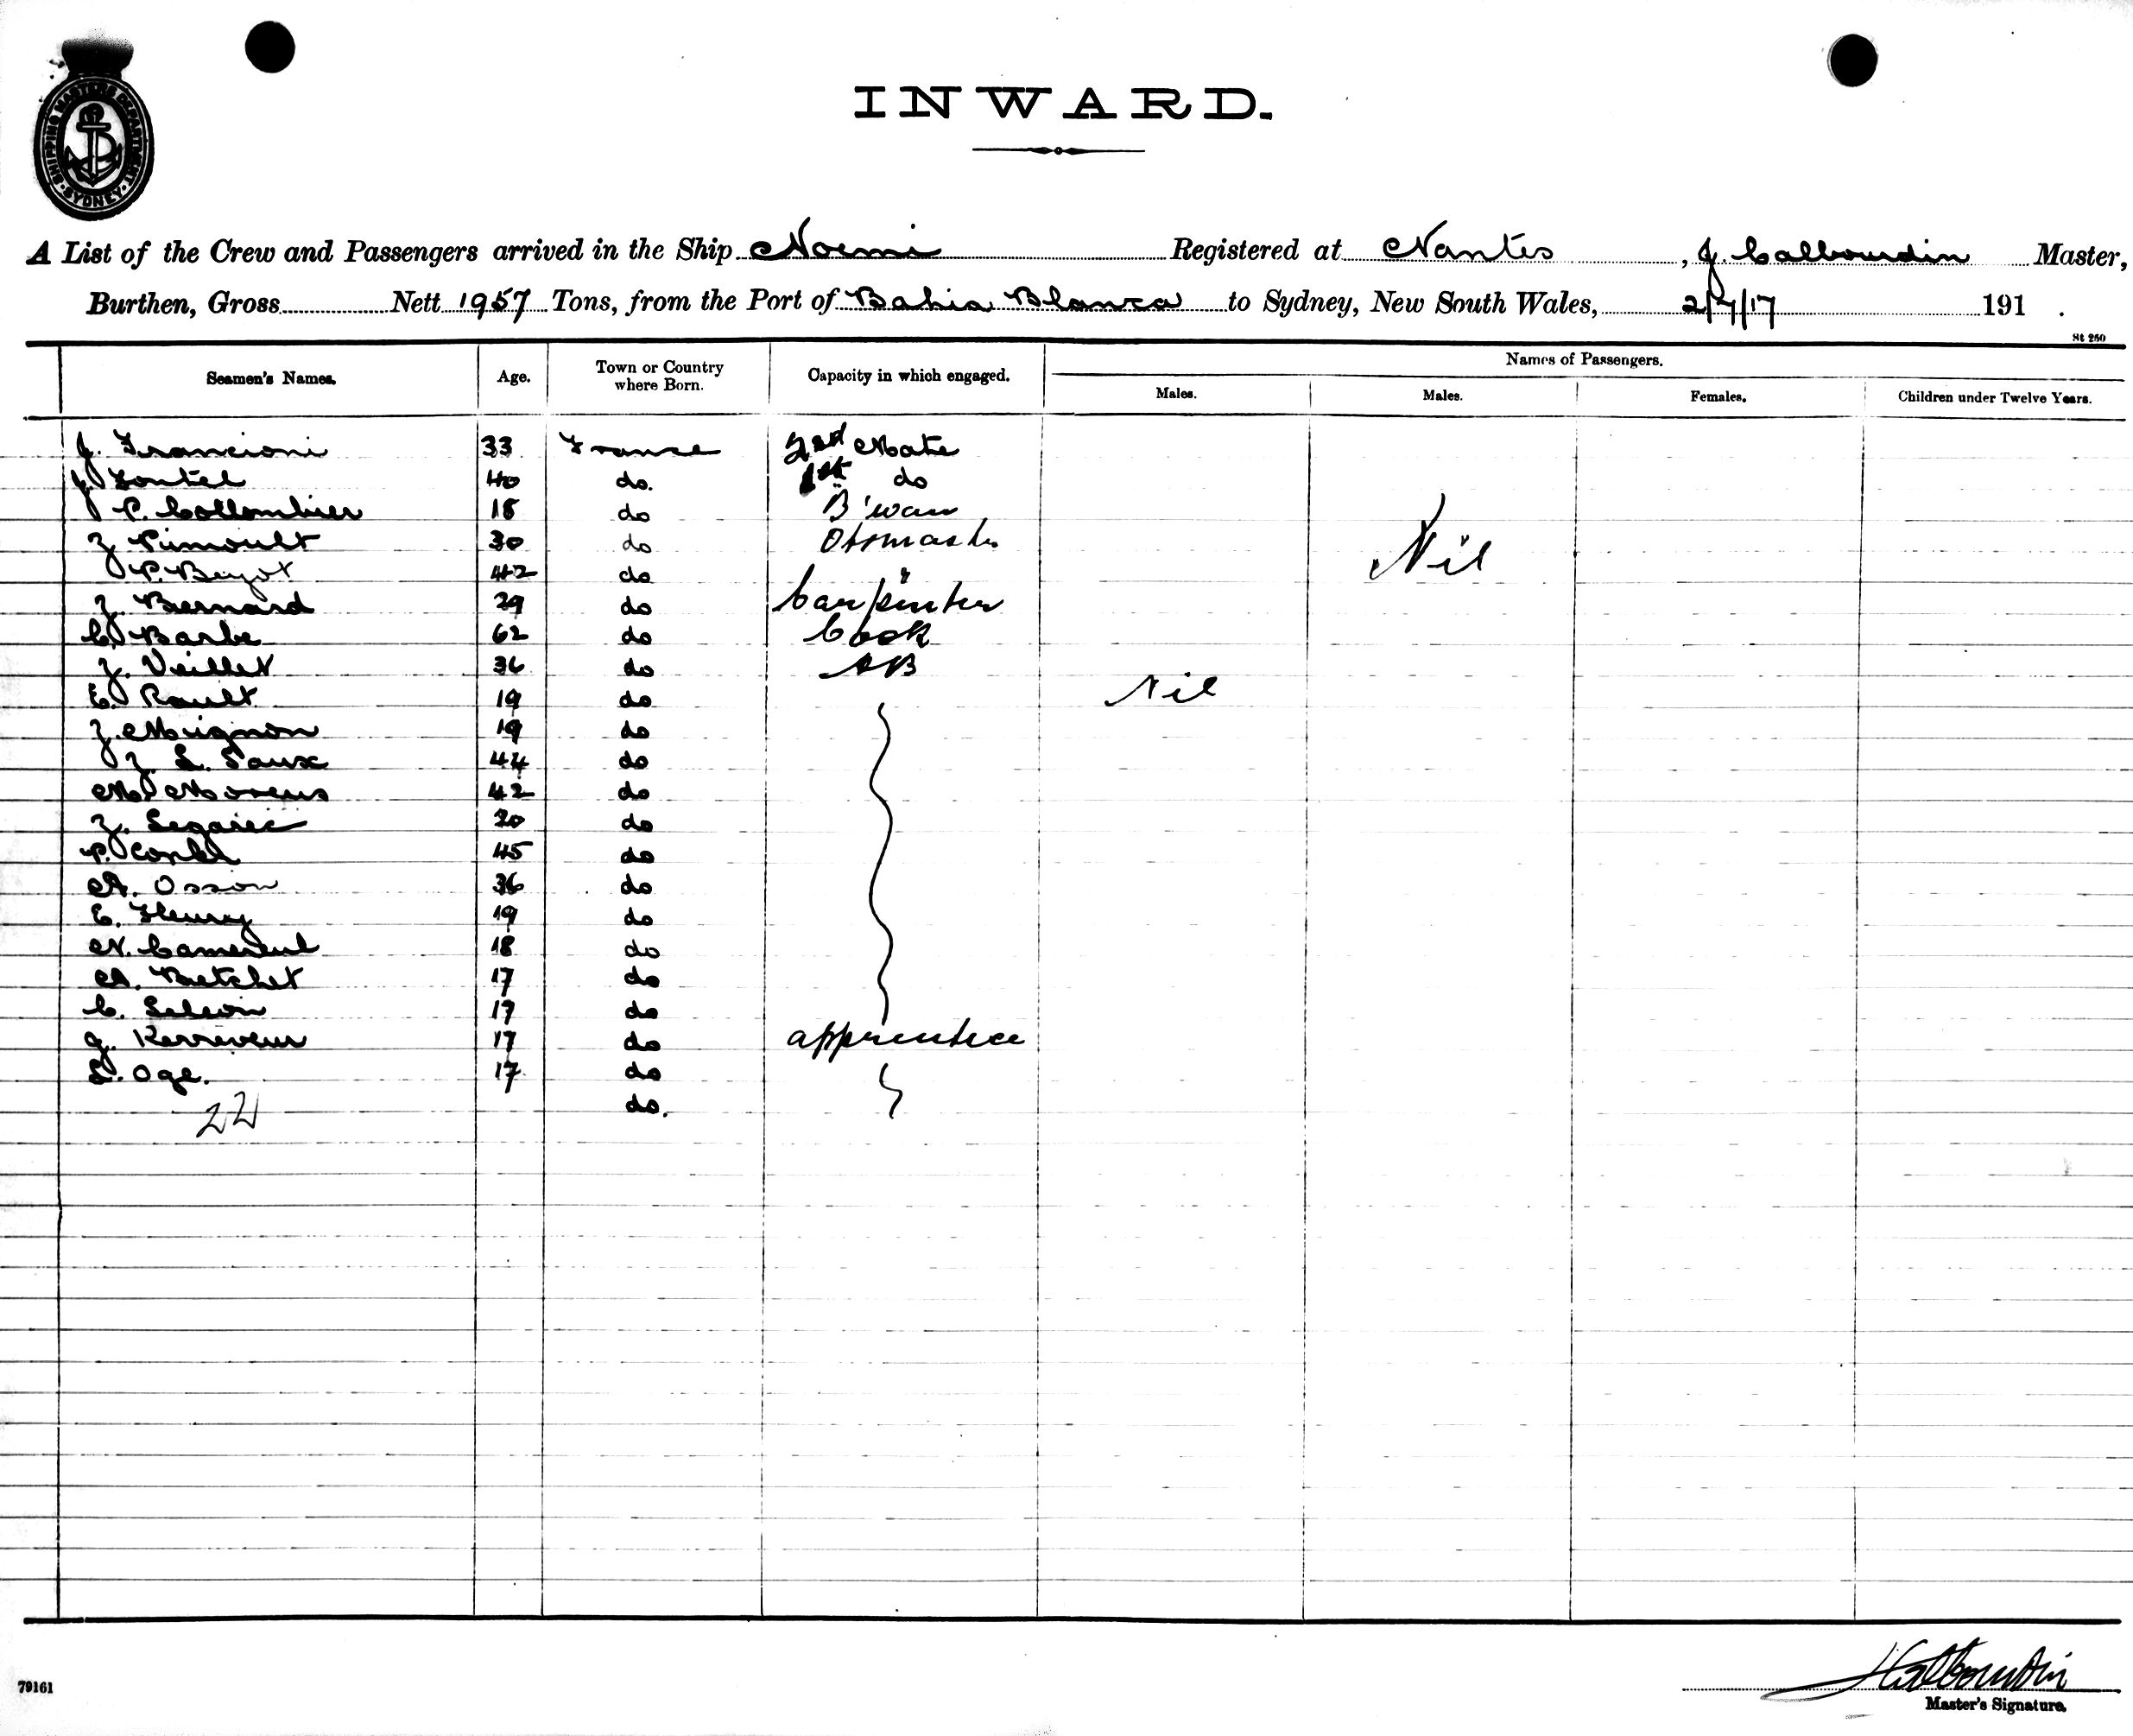 SHIPPING MASTERS DEPARTMENT
SYDNEY
INWARD.
A List of the Crew and Passengers arrived in the Ship Noemi Registered at Nantes, J. Calbourdin Master,
Burthen, Gross Nett 1957 Tons, from the Port of Bahia Blanca to Sydney, New South Wales, 2/7/17 191 .
St 250
Names of Passengers.
Seamen's Names. Age. Town or Country where Born. Capacity in which engaged. Males. Males. Females. Children under Twelve Years.
J. Francioni 33 France 2nd Mate
J. Fontel 40 do. 1st do
P. Collombier 18 do B'wan
30 do
P. Bezot 42 do "
F. Bernard 29 do Carpenter
C. Barbe 62 do Cook
F. Veillet 36 do AB
E. Rault 19 do
F. Mignon 19 do
F. L. Saux 44 do
M. 42 do
F. 20 do
P. 45 do
A. Osson 36 do
E. Fleury 19 do
N. 18 do
A. Betchet 17 do
C. 17 do
G. 17 do apprentice
L. Oge. 17 do
22 do.
Nil
Nil
Calbourdin
Master's Signature.
79161